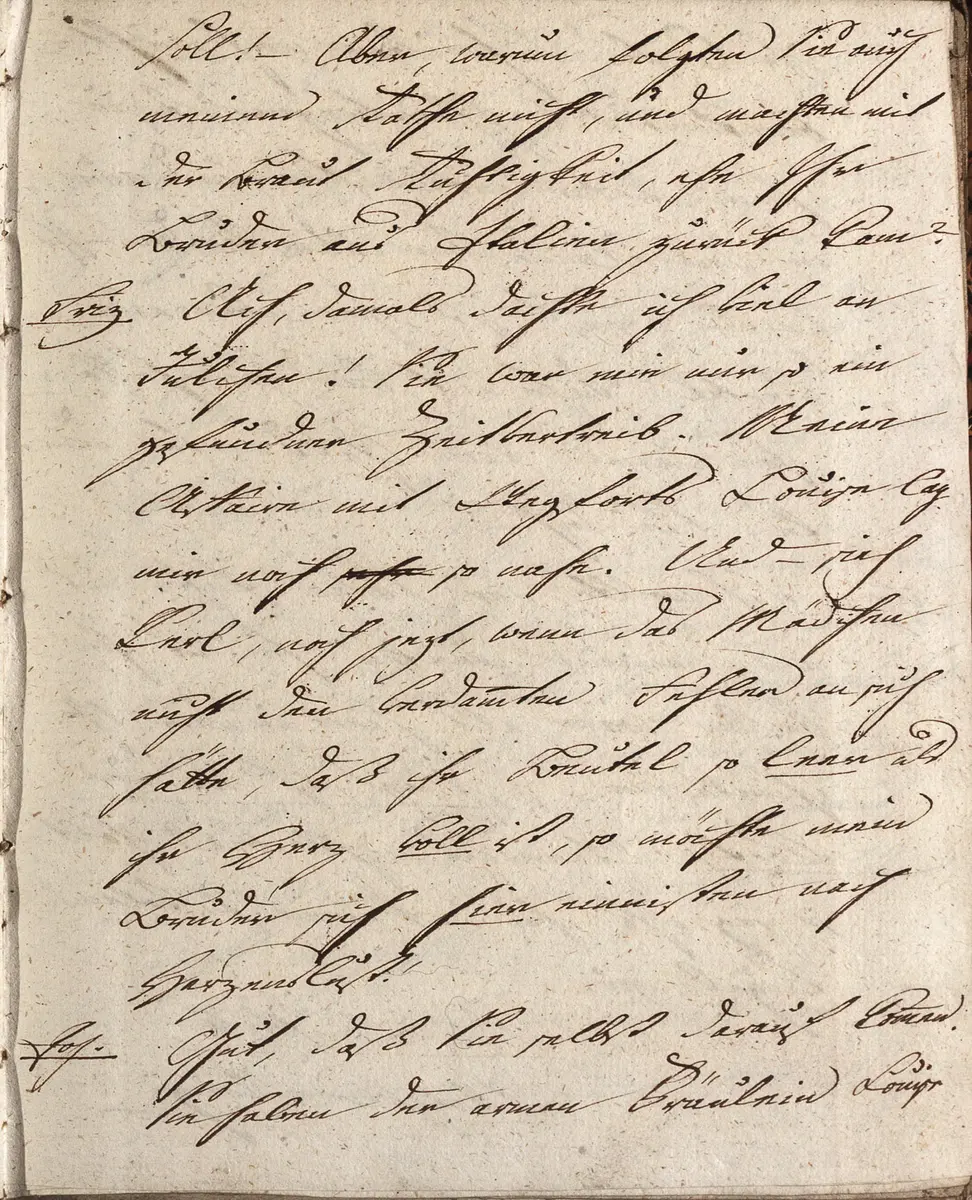 soll! – Aber, warum folgten Sie auch
meinem Rathe nicht, und machten mit
der Braut Richtigkeit, ehe Ihr
Bruder aus Italien zurück kam?
Friz Ach, damals dachte ich viel an
Julchen! Sie war mir nur so ein
gefundner Zeitvertreib. Meine
Affaire mit Louise lag
mir noch so nahe. Und – sieh
Kerl, noch jezt, wenn das Mädchen
nicht den verdam̄ten Fehler an sich
hätte, daß ihr Beutel so leer als
ihr Herz voll ist, so möchte mein
Bruder sich hier einnisten nach
Herzenslust!
Joh. Gut, daß Sie selbst darauf kom̄en.
Sie haben der armen Fräulein Louise